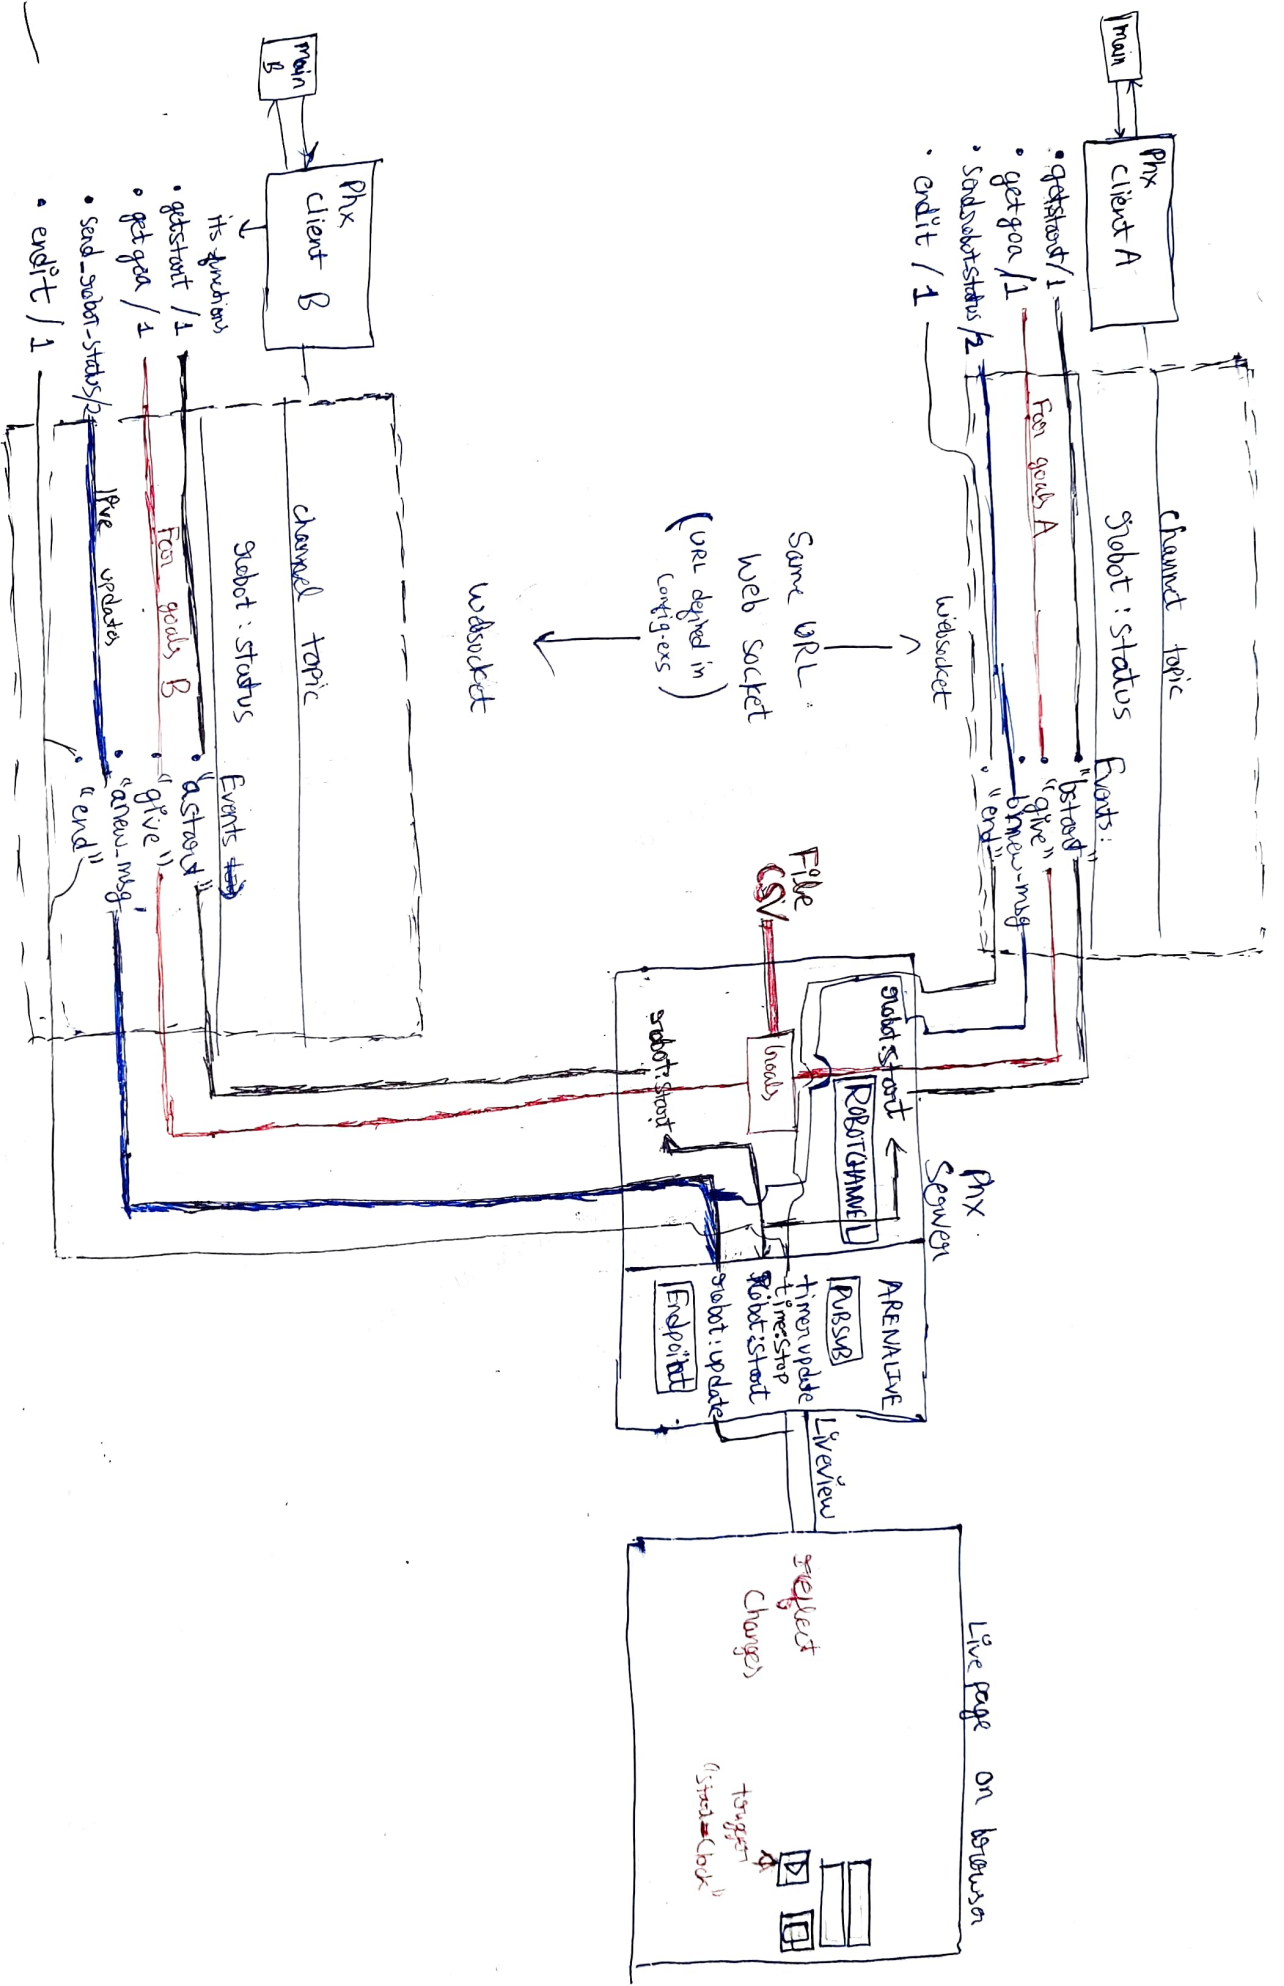 main
Phx
Client A
• getstart/1
• getgoa/1
• sendrobot-status/2
• endit/1
channel topic
robot : status
Events:
• "bstart"
• "give"
• bnew-msg
• "end"
For goals A
Websocket
Same URL :
Web Socket
(URL defined in)
config-exs
Websocket
main
B
Phx
Client B
its functions
• getstart/1
• getgoa/1
• send_robot-status/2
• endit/1
channel topic
robot : status
Events
• "astart"
• "give"
• "anew_msg'
• "end"
For goals B
live updates
File
CSV
Goals
Phx
Server
robot:start
ROBOTCHANNEL
robot:start
ARENALIVE
PUBSUB
timer:update
time:stop
Robot:start
robot:update
Endpoint
Liveview
Live page on browser
reflect
Changes
trigger
"start-Clock"